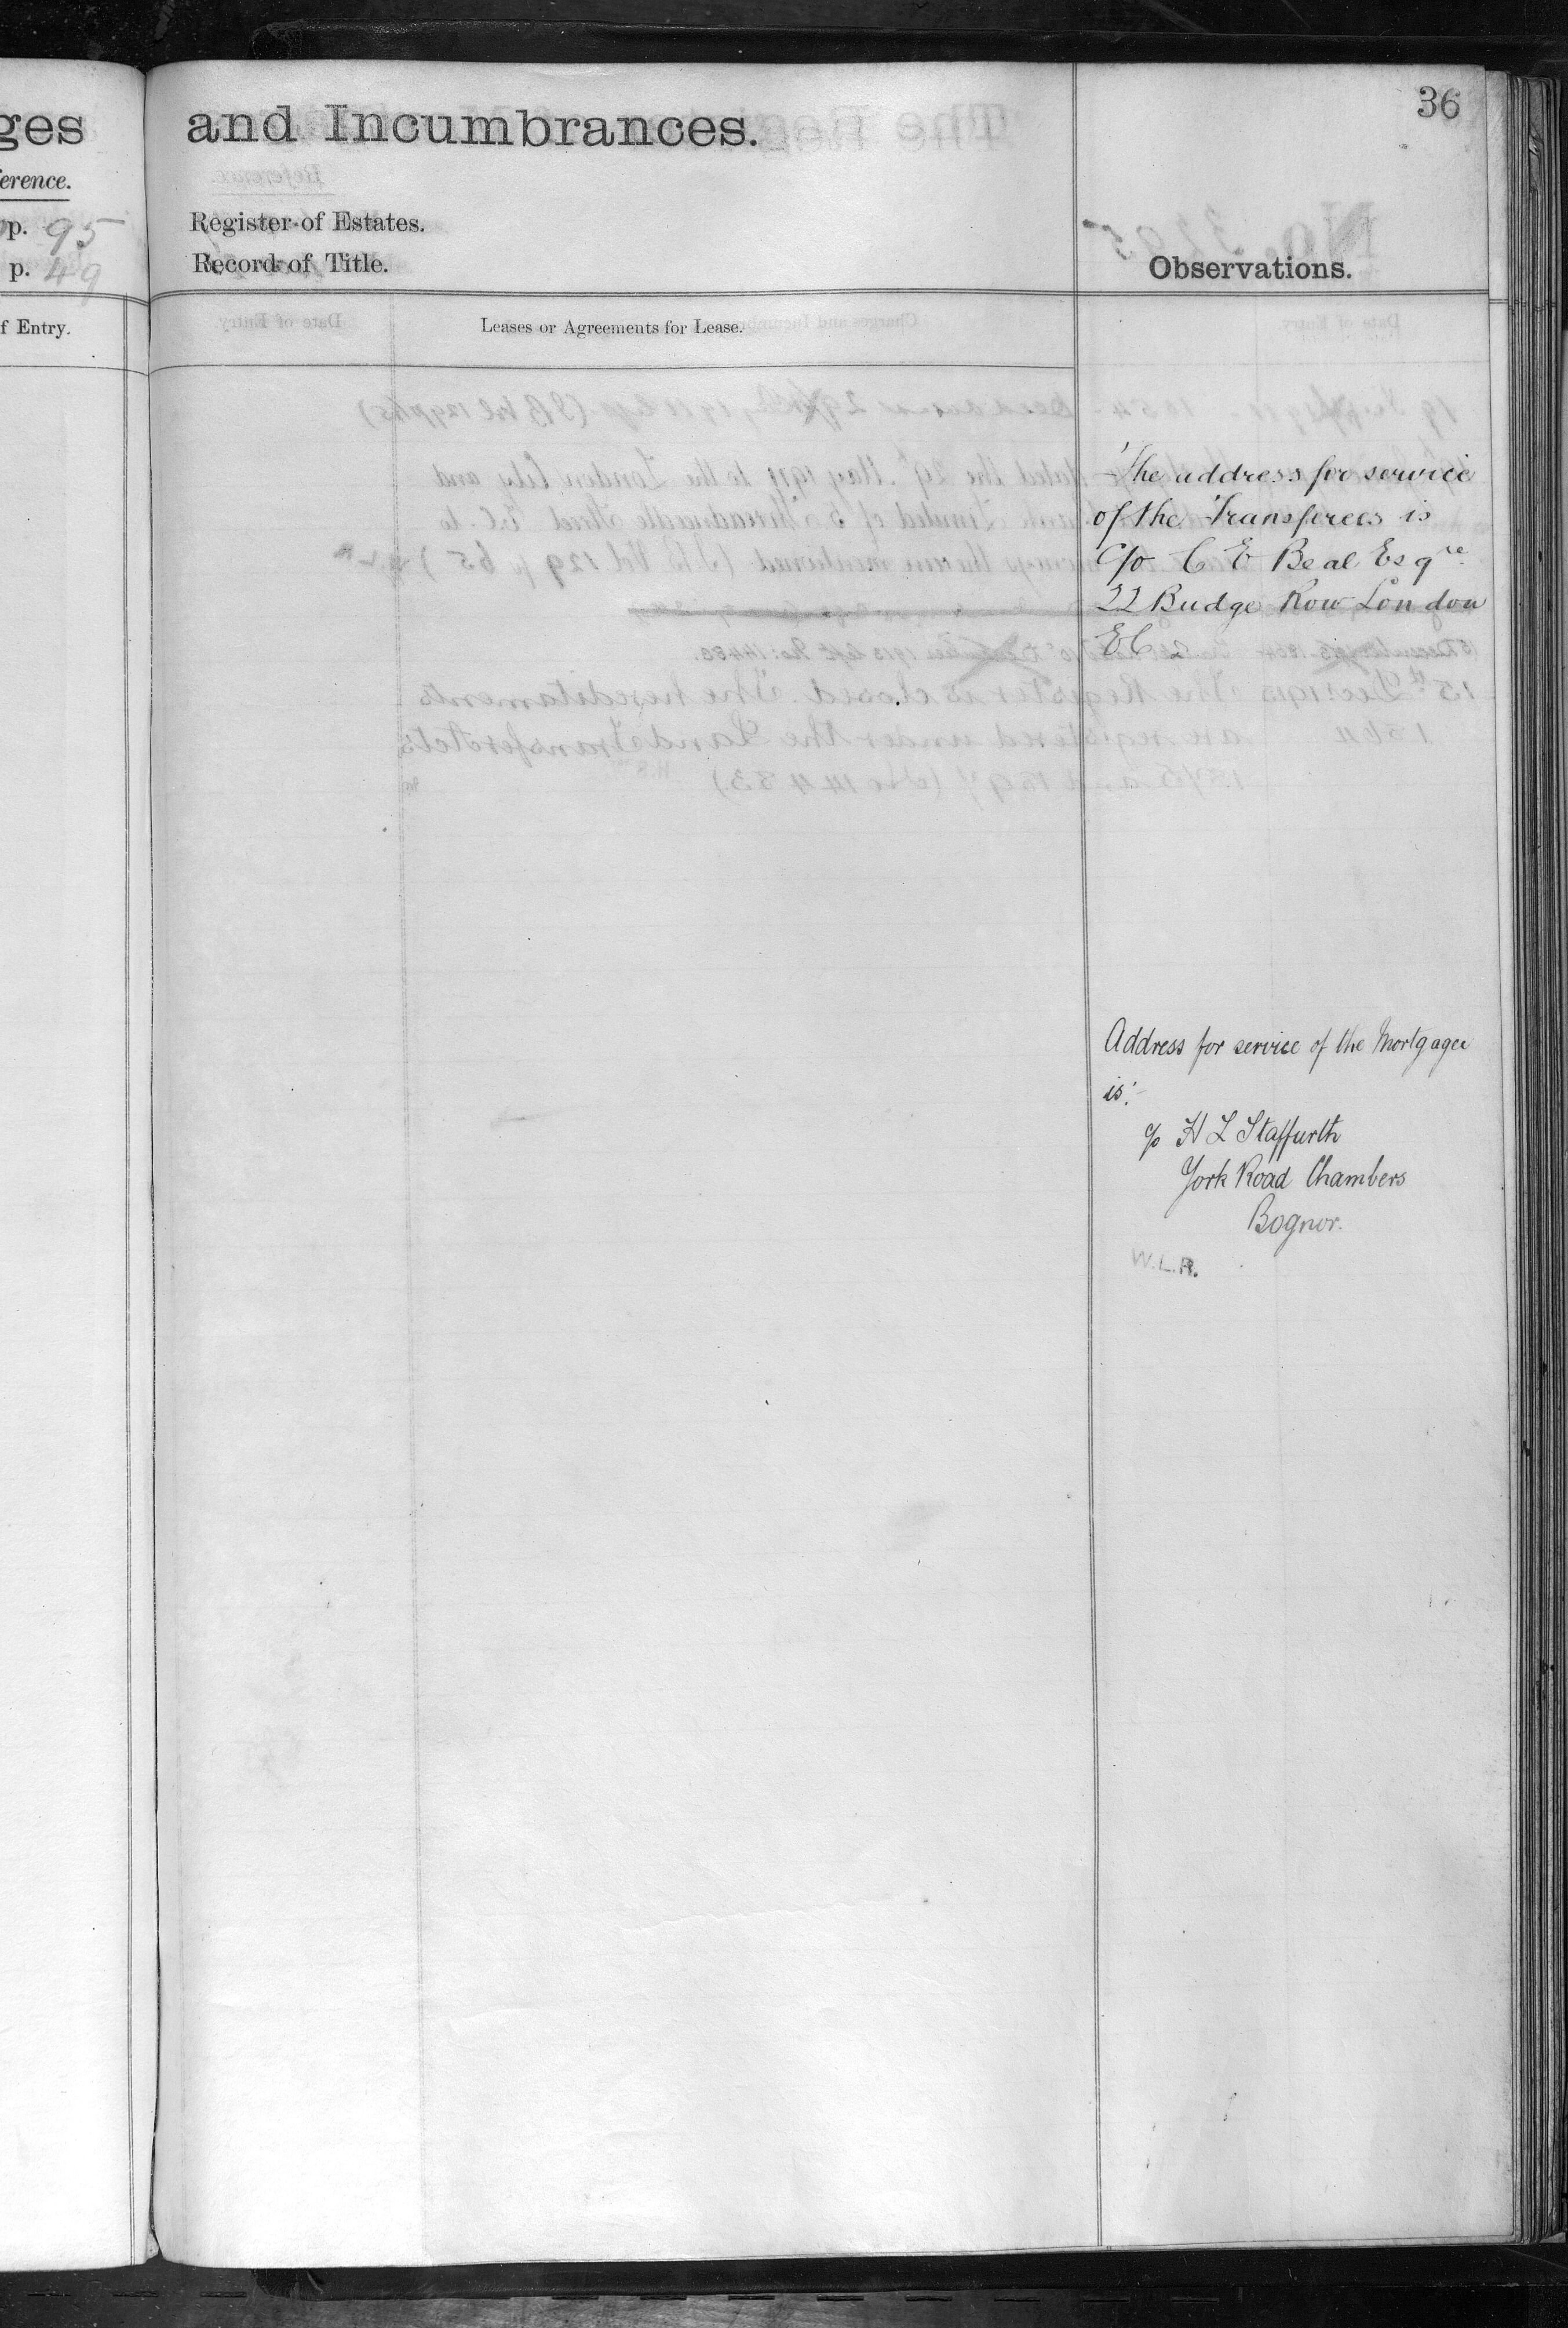 ges
erence.
p. 95
p. 49
f Entry.
and Incumbrances.
36
Register of Estates.
Record of Title.
Observations.
Leases or Agreements for Lease.
The address for service
of the Transferees is
C/o C E Beal Esqre
22 Budge Row London
EC
Address for service of the Mortgagee
is:-
c/o H L Staffurth
York Road Chambers
Bognor.
W.L.R.